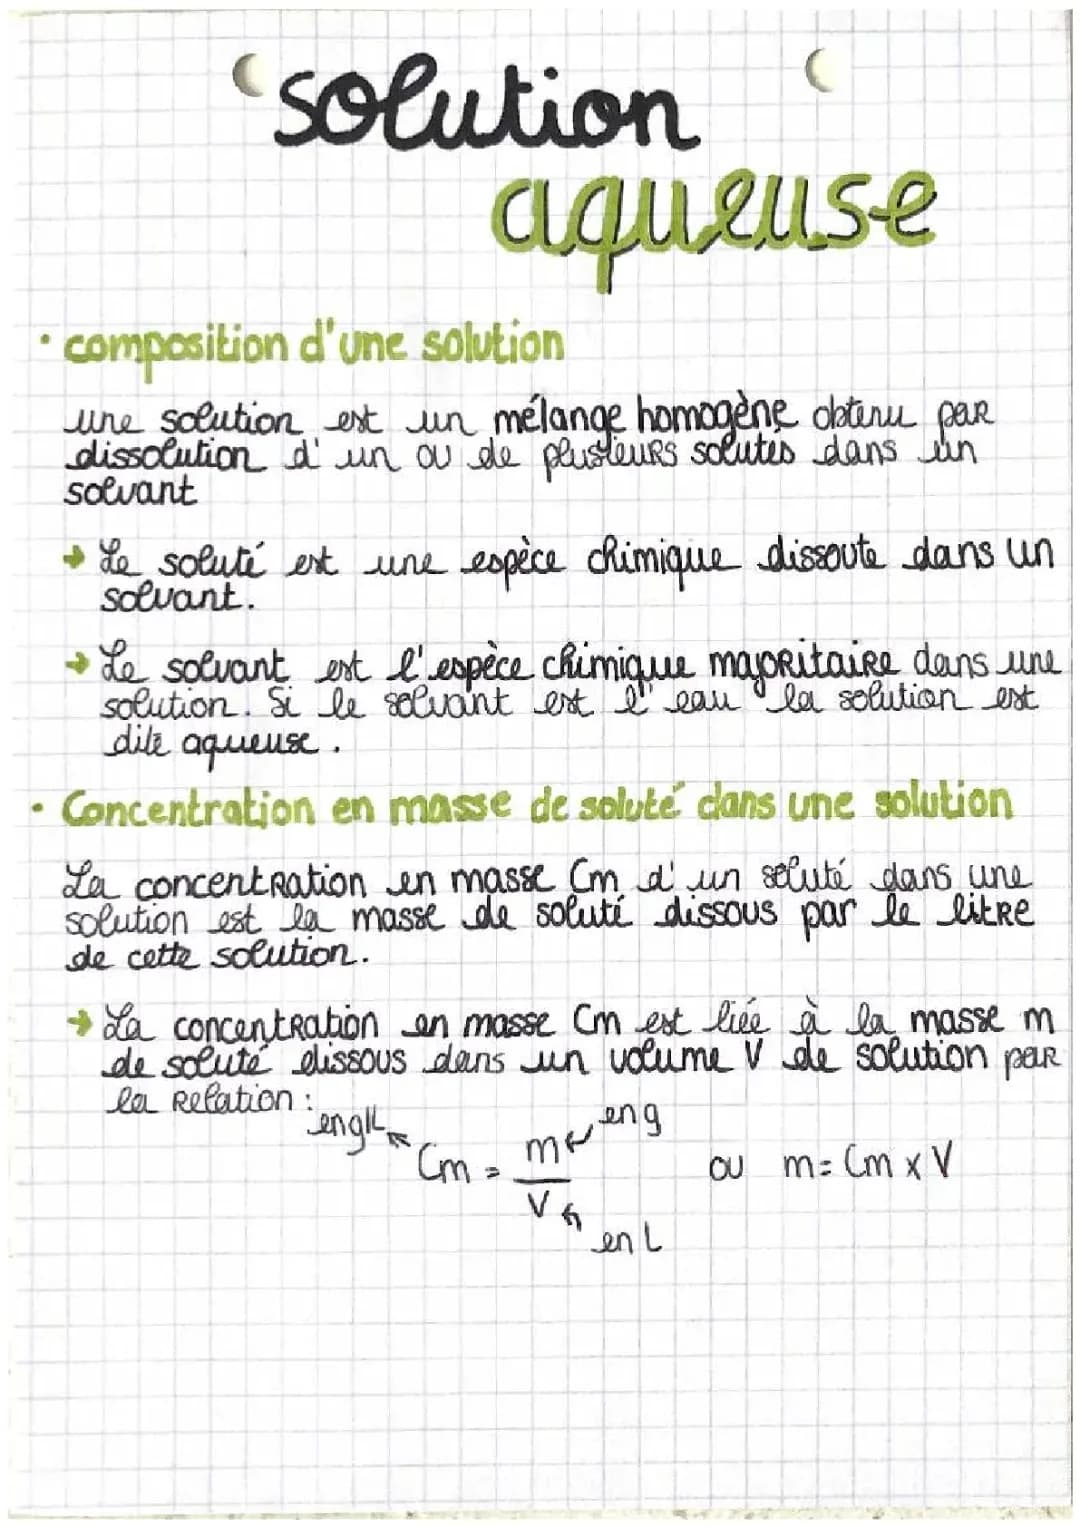 solution
aqueuse
• composition d'une solution
une solution est un mélange homogène obtenu par
dissolution d'un ou de plusieurs solutés dans un
solvant
→ Le soluté est une espèce chimique dissoute dans un
solvant.
→ Le solvant est l'espèce chimique majoritaire dans une
solution. Si le solvant est l'eau la solution est
dite aqueuse.
• Concentration en masse de soluté dans une solution
La concentration en masse Cm d'un soluté dans une
solution est la masse de soluté dissous par le litre
de cette solution.
→ La concentration en masse Cm est liée à la masse m
de soluté dissous dans un volume V de solution par
la relation :
en g/L Cm = m/V ou m = Cm x V
en g
en L